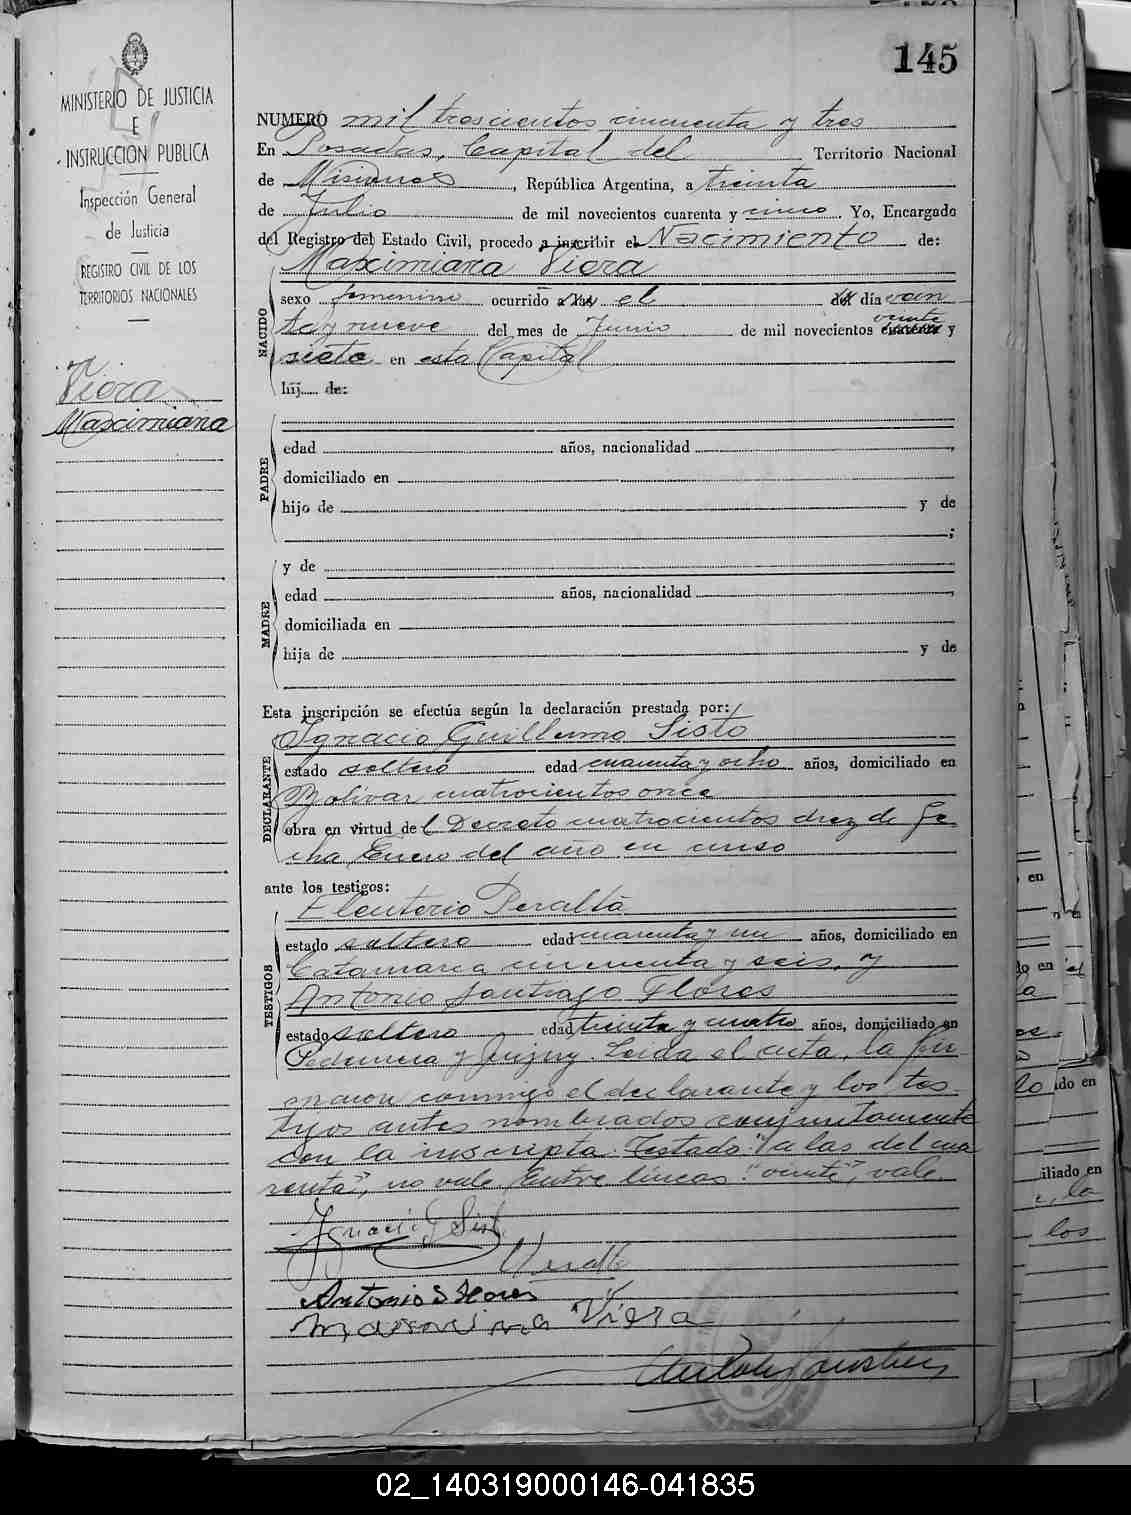 145
MINISTERIO DE JUSTICIA
E
INSTRUCCION PUBLICA
Inspección General
de Justicia
REGISTRO CIVIL DE LOS
TERRITORIOS NACIONALES
Viera
Maximiana
NUMERO mil trescientos cincuenta y tres
En Posadas, Capital del Territorio Nacional
de Misiones, República Argentina, a treinta
de Julio de mil novecientos cuarenta y cinco. Yo, Encargado
del Registro del Estado Civil, procedo a inscribir el Nacimiento de:
Maximiana Viera
NACIDO
sexo femenino ocurrido a las el del día
y nueve del mes de Junio de mil novecientos veinte y
siete en esta Capital
hij de:
PADRE
edad años, nacionalidad ,
domiciliado en
hijo de y de
;
MADRE
y de
edad años, nacionalidad ,
domiciliada en
hija de y de
Esta inscripción se efectúa según la declaración prestada por:
DECLARANTE
Ignacio Guillermo Sisto
estado soltero edad cuarenta y ocho años, domiciliado en
Bolívar cuatrocientos once
obra en virtud del Decreto cuatrocientos diez de fe
cha Enero del año en curso
ante los testigos:
TESTIGOS
Eleuterio Peralta
estado soltero edad cuarenta y un años, domiciliado en
Catamarca cincuenta y seis, y
Antonio Santiago Flores
estado soltero edad treinta y cuatro años, domiciliado en
Pedernera y Jujuy. Leida el acta, la fir
maron conmigo el declarante y los tes
tigos antes nombrados conjuntamente
con la inscripta. Testado: "a las del cua
renta", no vale. Entre líneas: "veinte", vale.
Ignacio G Sisto
Peralta
Antonio S Flores
Viera
02_140319000146-041835